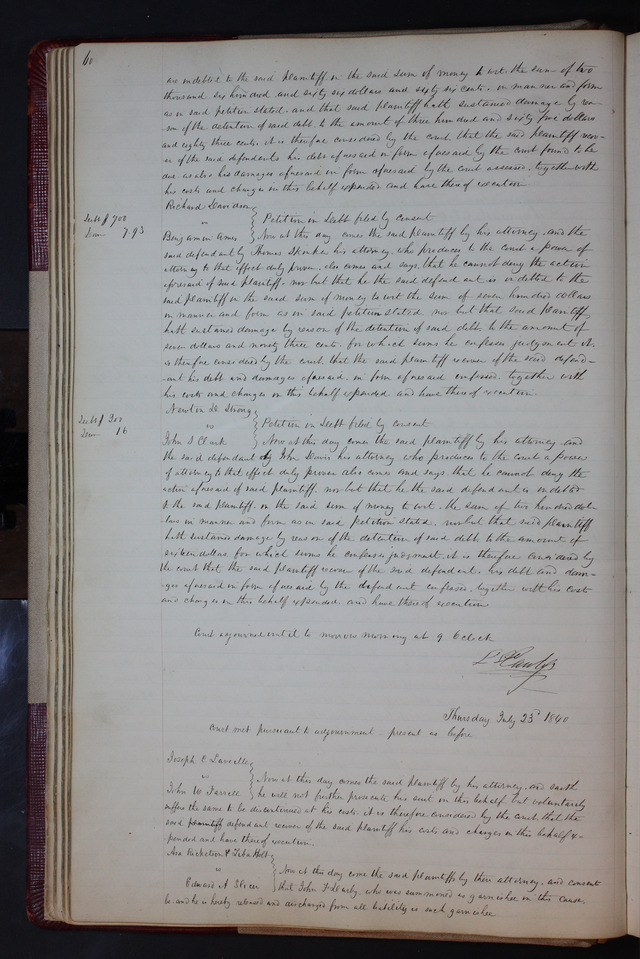 60
are indebted to the said plaintiff in the said sum of money to wit the sum of two
thousand six hundred and sixty six dollars and sixty six cents in manner and form
as in said petition stated and that said plaintiff hath sustained damage by rea-
son of the detention of said debt to the amount of three hundred and sixty five dollars
and eighty three cents it is therefore considered by the court that the said plaintiff recov-
er of the said defendants his debt aforesaid in form aforesaid by the court found to be
due as also his damages aforesaid in form aforesaid by the court assessed, together with
his costs and charges in this behalf expended and have thereof execution
Richard Davidson
Debt $ 700
vs
Petition in Debt filed by consent
Dam 7 93
Benjamin Ames
Now at this day comes the said plaintiff by his attorney and the
said defendant by Thomas his attorney, who produces to the court a power of
attorney to that effect duly proven, also comes and says, that he cannot deny the action
aforesaid of said plaintiff, nor but that he the said defendant is indebted to the
said plaintiff in the said sum of money to wit the sum of seven hundred dollars
in manner and form as in said petition stated, nor but that said plaintiff
hath sustained damage by reason of the detention of said debt to the amount of
seven dollars and ninety three cents, for which sums he confesses judgment it
is therefore considered by the court that the said plaintiff recover of the said defend-
ant his debt and damages aforesaid, in form aforesaid confessed, together with
his costs and charges in this behalf expended and have thereof execution
Newton D Strong
Debt $ 200
vs
Petition in Debt filed by consent
Dam 16
John S Clark
Now at this day comes the said plaintiff by his attorney and
the said defendant by John his attorney who produces to the court a power
of attorney to that effect duly proven also comes and says that he cannot deny the
action aforesaid of said plaintiff, nor but that he the said defendant is indebted
to the said plaintiff in the said sum of money to wit, the sum of two hundred dol-
lars in manner and form as in said petition stated, nor but that said plaintiff
hath sustained damage by reason of the detention of said debt to the amount of
sixteen dollars, for which sums he confesses judgment, it is therefore considered by
the court that the said plaintiff recover of the said defendant, his debt and dam-
ages aforesaid in form aforesaid by the defendant confessed, together with his costs
and charges in this behalf expended and have thereof execution
Court adjourned until to morrow morning at 9 O clock
Thursday July 23d 1840
Court met pursuant to adjournment, present as before
Joseph C
vs
John W Farrell
Now at this day comes the said plaintiff by his attorney, and saith
he will not further prosecute his suit in this behalf but voluntarily
suffers the same to be discontinued at his costs, it is therefore considered by the court, that the
said plaintiff defendant recover of the said plaintiff his costs and charges in this behalf ex-
pended and have thereof execution.
Asa Ricketson & John Holt
vs
Now at this day come the said plaintiffs by their attorney, and consent
Edward A
that John who was summoned as garnishee in this cause,
be and he is hereby released and discharged from all liability as such garnishee